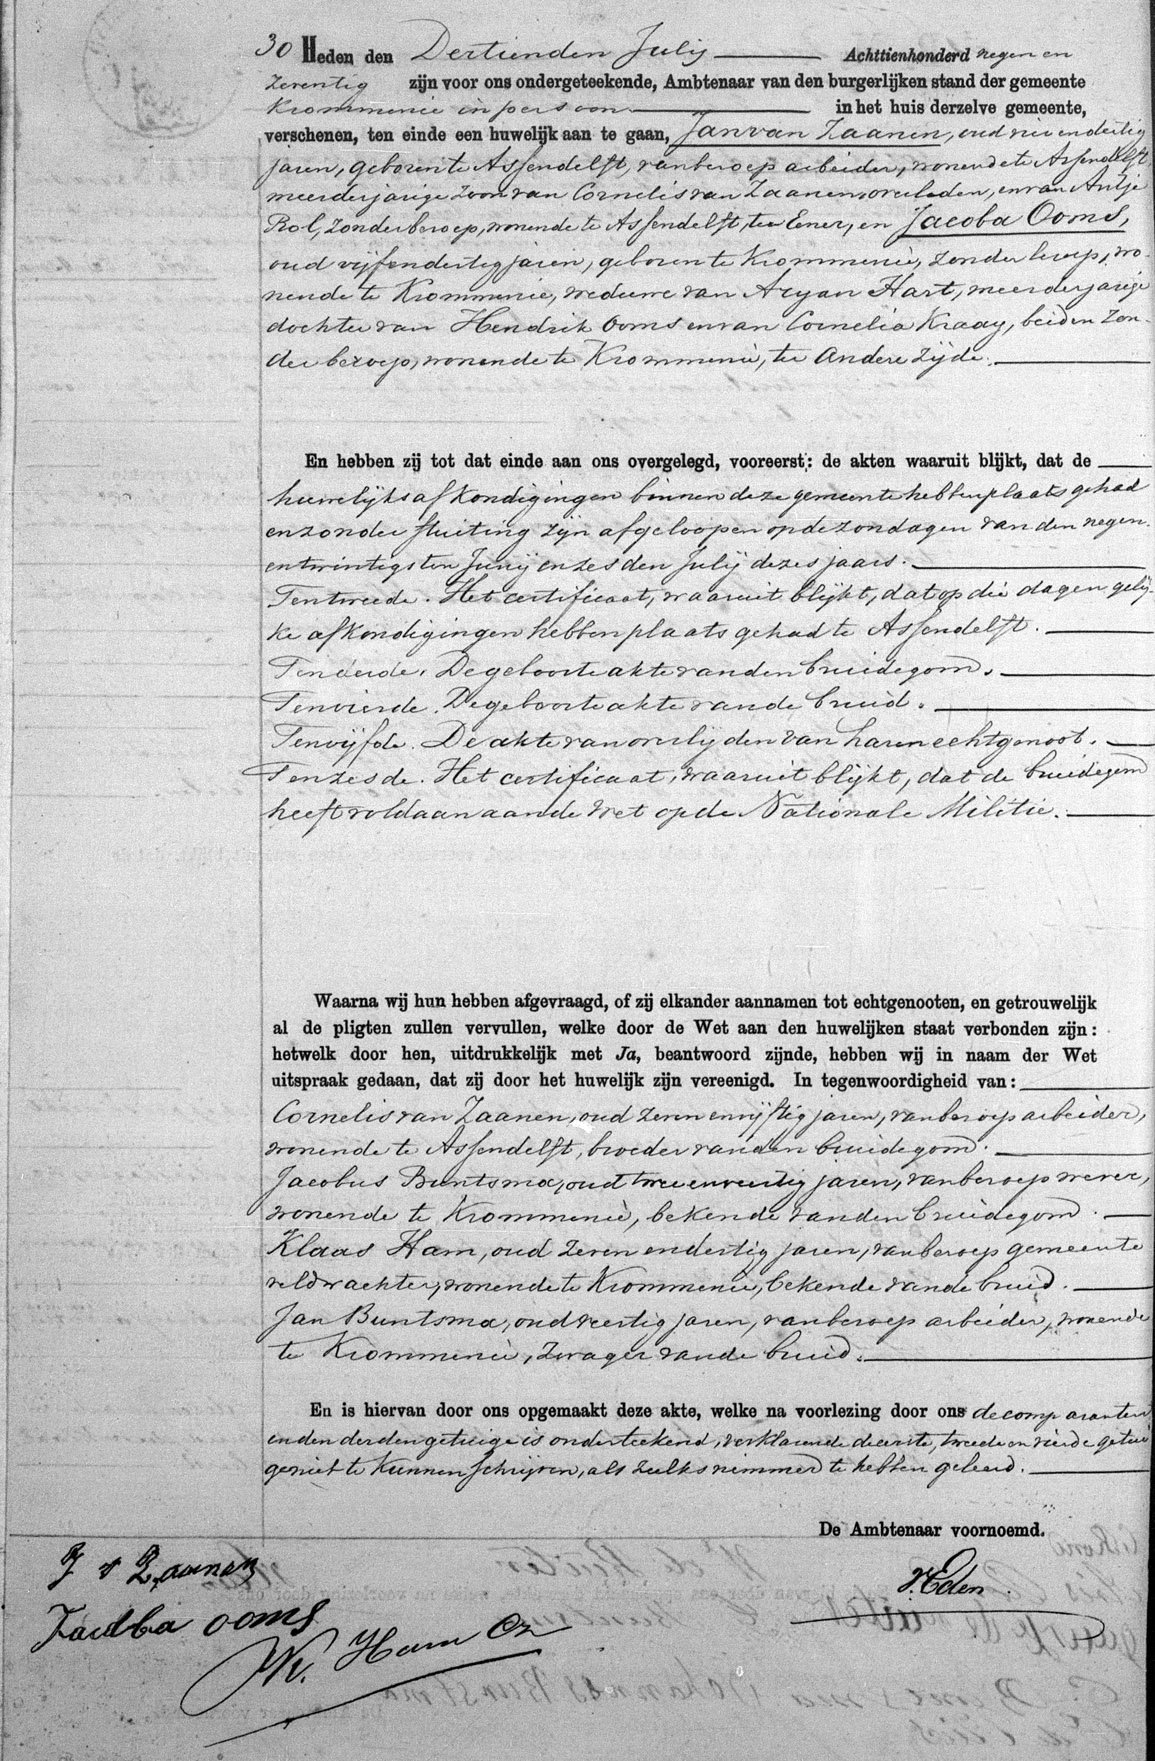 30 Heden den Dertienden Julij Achttienhonderd negen en
zeventig zijn voor ons ondergeteekende, Ambtenaar van den burgerlijken stand der gemeente
Krommenie in persoon in het huis derzelve gemeente,
verschenen, ten einde een huwelijk aan te gaan, Jan van Zaanen, oud negen en dertig
jaren, geboren te Assendelft, van beroep arbeider, wonende te Assendelft
meerderjarige zoon van Cornelis van Zaanen, overleden, en van Antje
Rol, zonder beroep, wonende te Assendelft, ter Eener, en Jacoba Ooms,
oud vijf en dertig jaren, geboren te Krommenie, zonder beroep, wo-
nende te Krommenie, weduwe van Aryan Hart, meerderjarige
dochter van Hendrik Ooms en van Cornelia Kraay, beiden zon-
der beroep, wonende te Krommenie, ter Andere zijde.
En hebben zij tot dat einde aan ons overgelegd, vooreerst: de akten waaruit blijkt, dat de
huwelijksafkondigingen binnen deze gemeente hebben plaats gehad
en zonder stuiting zijn afgeloopen op de zondagen van den negen-
entwintigsten Junij en zesden Julij dezes jaars.
Ten tweede. Het certificaat, waaruit blijkt, dat op die dagen gelij-
ke afkondigingen hebben plaats gehad te Assendelft.
Ten derde. De geboorteakte van den bruidegom.
Ten vierde. De geboorteakte van de bruid.
Ten vijfde. De akte van overlijden van haren echtgenoot.
Ten zesde. Het certificaat, waaruit blijkt, dat de bruidegom
heeft voldaan aan de Wet op de Nationale Militie.
Waarna wij hun hebben afgevraagd, of zij elkander aannamen tot echtgenooten, en getrouwelijk
al de pligten zullen vervullen, welke door de Wet aan den huwelijken staat verbonden zijn:
hetwelk door hen, uitdrukkelijk met Ja, beantwoord zijnde, hebben wij in naam der Wet
uitspraak gedaan, dat zij door het huwelijk zijn vereenigd. In tegenwoordigheid van:
Cornelis van Zaanen, oud zeven en vijftig jaren, van beroep arbeider,
wonende te Assendelft, broeder van den bruidegom.
Jacobus Buntsma, oud twee en veertig jaren, van beroep wever,
wonende te Krommenie, bekende van den bruidegom.
Klaas Ham, oud zeven en dertig jaren, van beroep gemeente
veldwachter, wonende te Krommenie, bekende van de bruid.
Jan Buntsma, oud veertig jaren, van beroep arbeider, wonende
te Krommenie, zwager van de bruid.
En is hiervan door ons opgemaakt deze akte, welke na voorlezing door ons de comparanten
en den derden getuige is onderteekend, verklarende de eerste, tweede en vierde getui-
ge niet te kunnen schrijven, als zulks nimmer te hebben geleerd.
De Ambtenaar voornoemd.
J v Zaanen
Jacoba ooms
K. Ham Cz